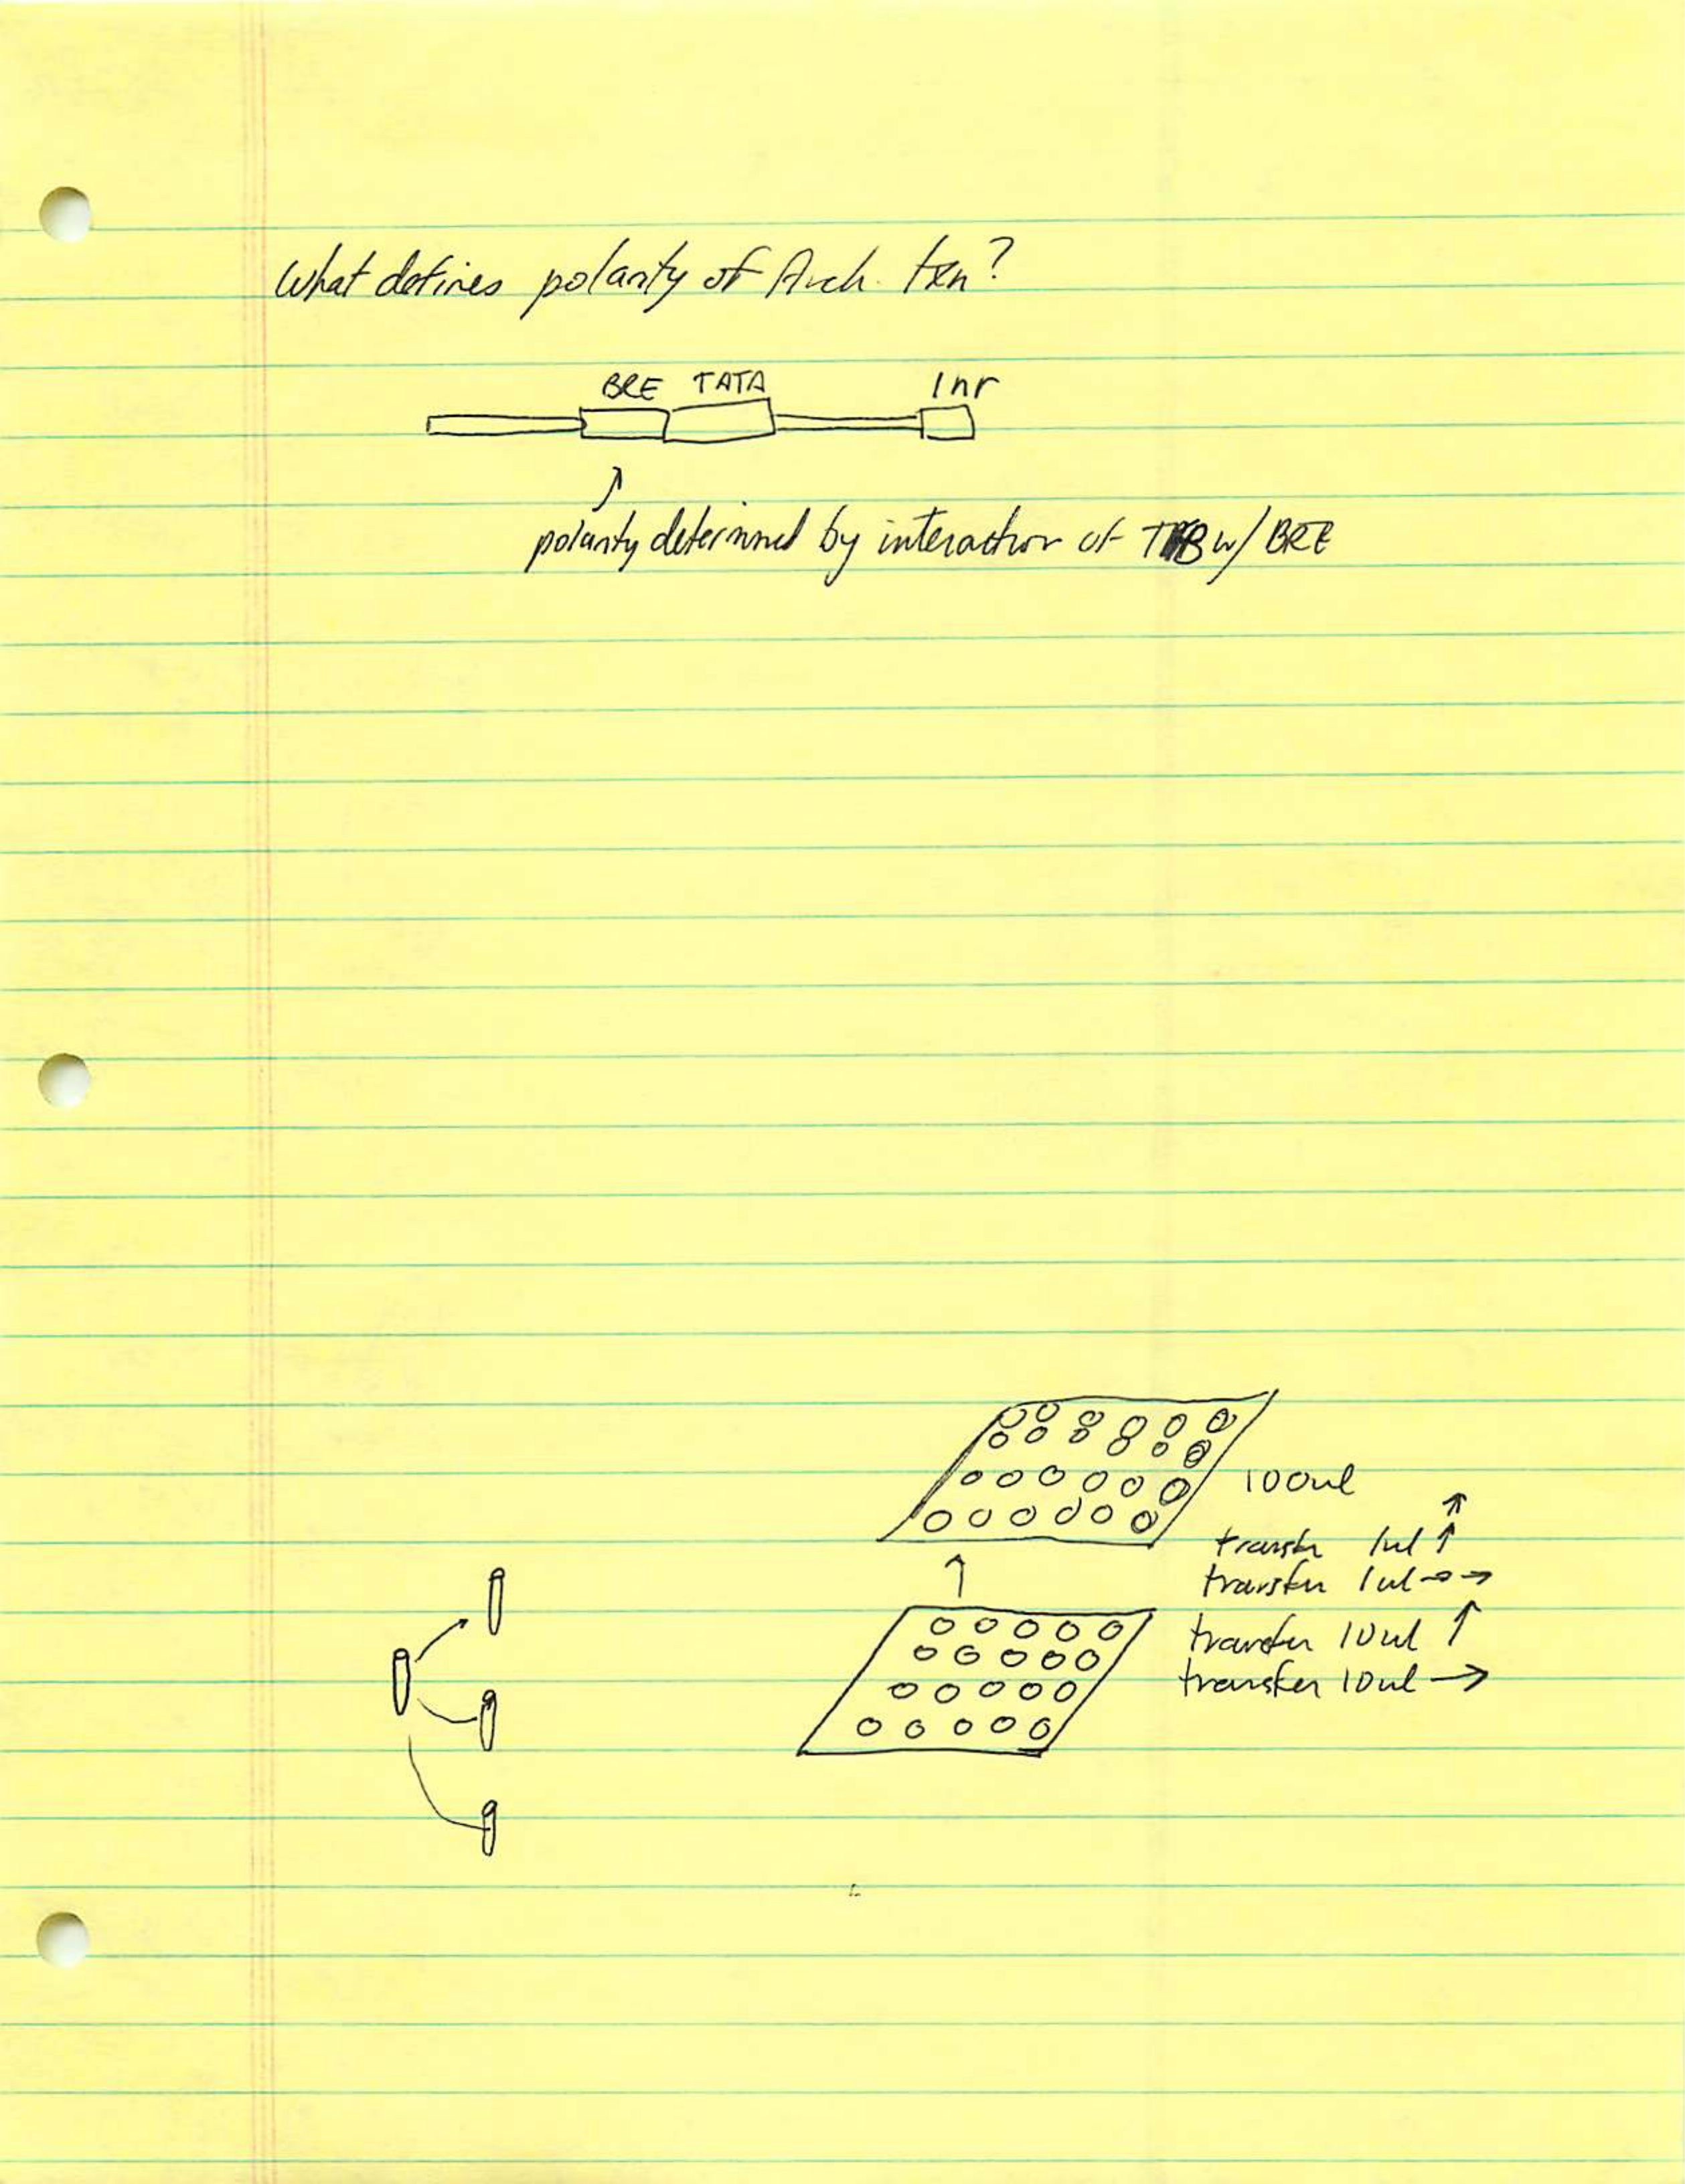 What defines polarity of Arch. txn?
BRE TATA Inr
polarity determined by interaction of TFB w/ BRE
100ul
transfer 1ul ↑↑
transfer 1ul →→
transfer 10ul ↑
transfer 10ul →